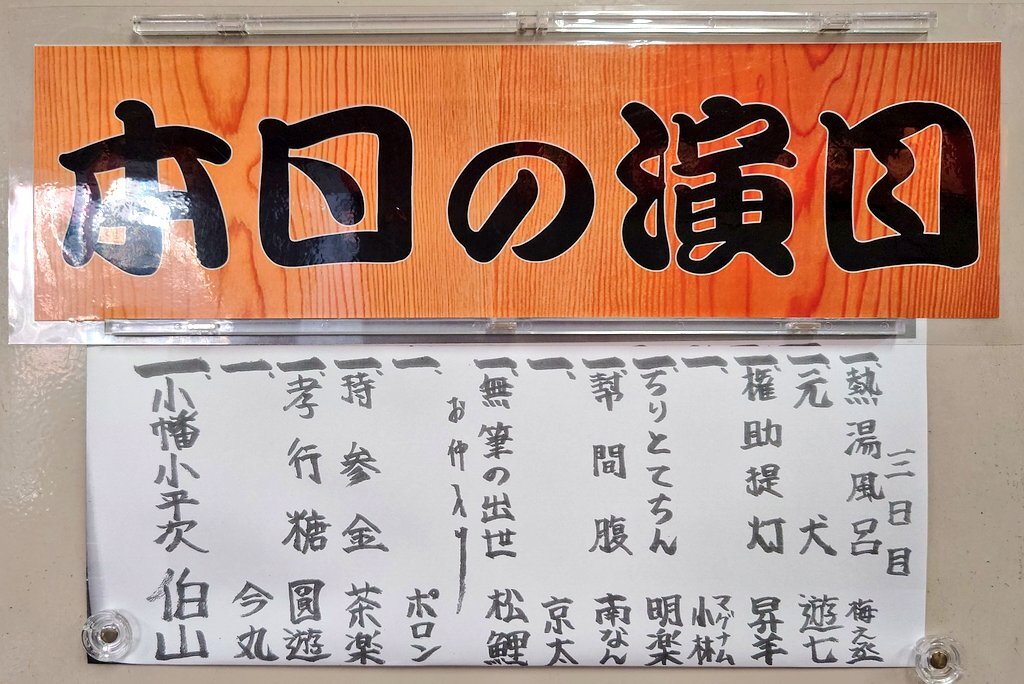 本日の演目
三日目
一、熱湯風呂 梅之丞
一、元犬 遊七
一、権助提灯 昇羊
一、マグナム小林
一、ちりとてちん 明楽
一、幇間腹 南なん
一、京太
一、無筆の出世 松鯉
お仲入り
一、ポロン
一、持参金 茶楽
一、孝行糖 圓遊
一、今丸
一、小幡小平次 伯山